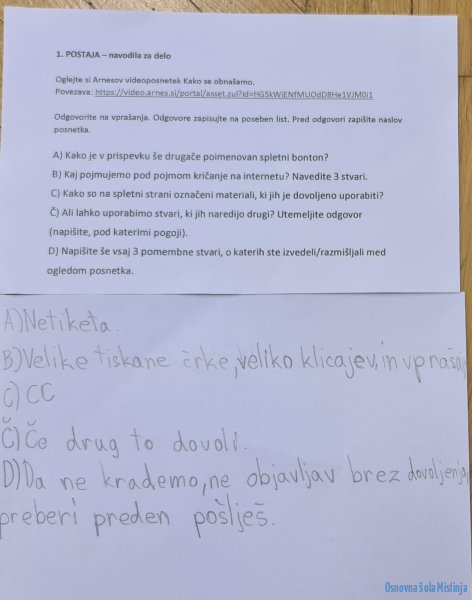 1. POSTAJA – navodila za delo
Oglejte si Arnesov videoposnetek Kako se obnašamo.
Povezava: https://video.arnes.si/portal/asset.zul?id=HGSkWiENfMUOdD8He1VJM0i1
Odgovorite na vprašanja. Odgovore zapisujte na poseben list. Pred odgovori zapišite naslov
posnetka.
A) Kako je v prispevku še drugače poimenovan spletni bonton?
B) Kaj pojmujemo pod pojmom kričanje na internetu? Navedite 3 stvari.
C) Kako so na spletni strani označeni materiali, ki jih je dovoljeno uporabiti?
Č) Ali lahko uporabimo stvari, ki jih naredijo drugi? Utemeljite odgovor
(napišite, pod katerimi pogoji).
D) Napišite še vsaj 3 pomembne stvari, o katerih ste izvedeli/razmišljali med
ogledom posnetka.
A) Netiketa.
B) Velike tiskane črke, veliko klicajev, in vprašaj
C) CC
Č) Če drug to dovoli.
D) Da ne krademo, ne objavljav brez dovoljenja,
preberi preden pošlješ.
Osnovna šola Mislinja